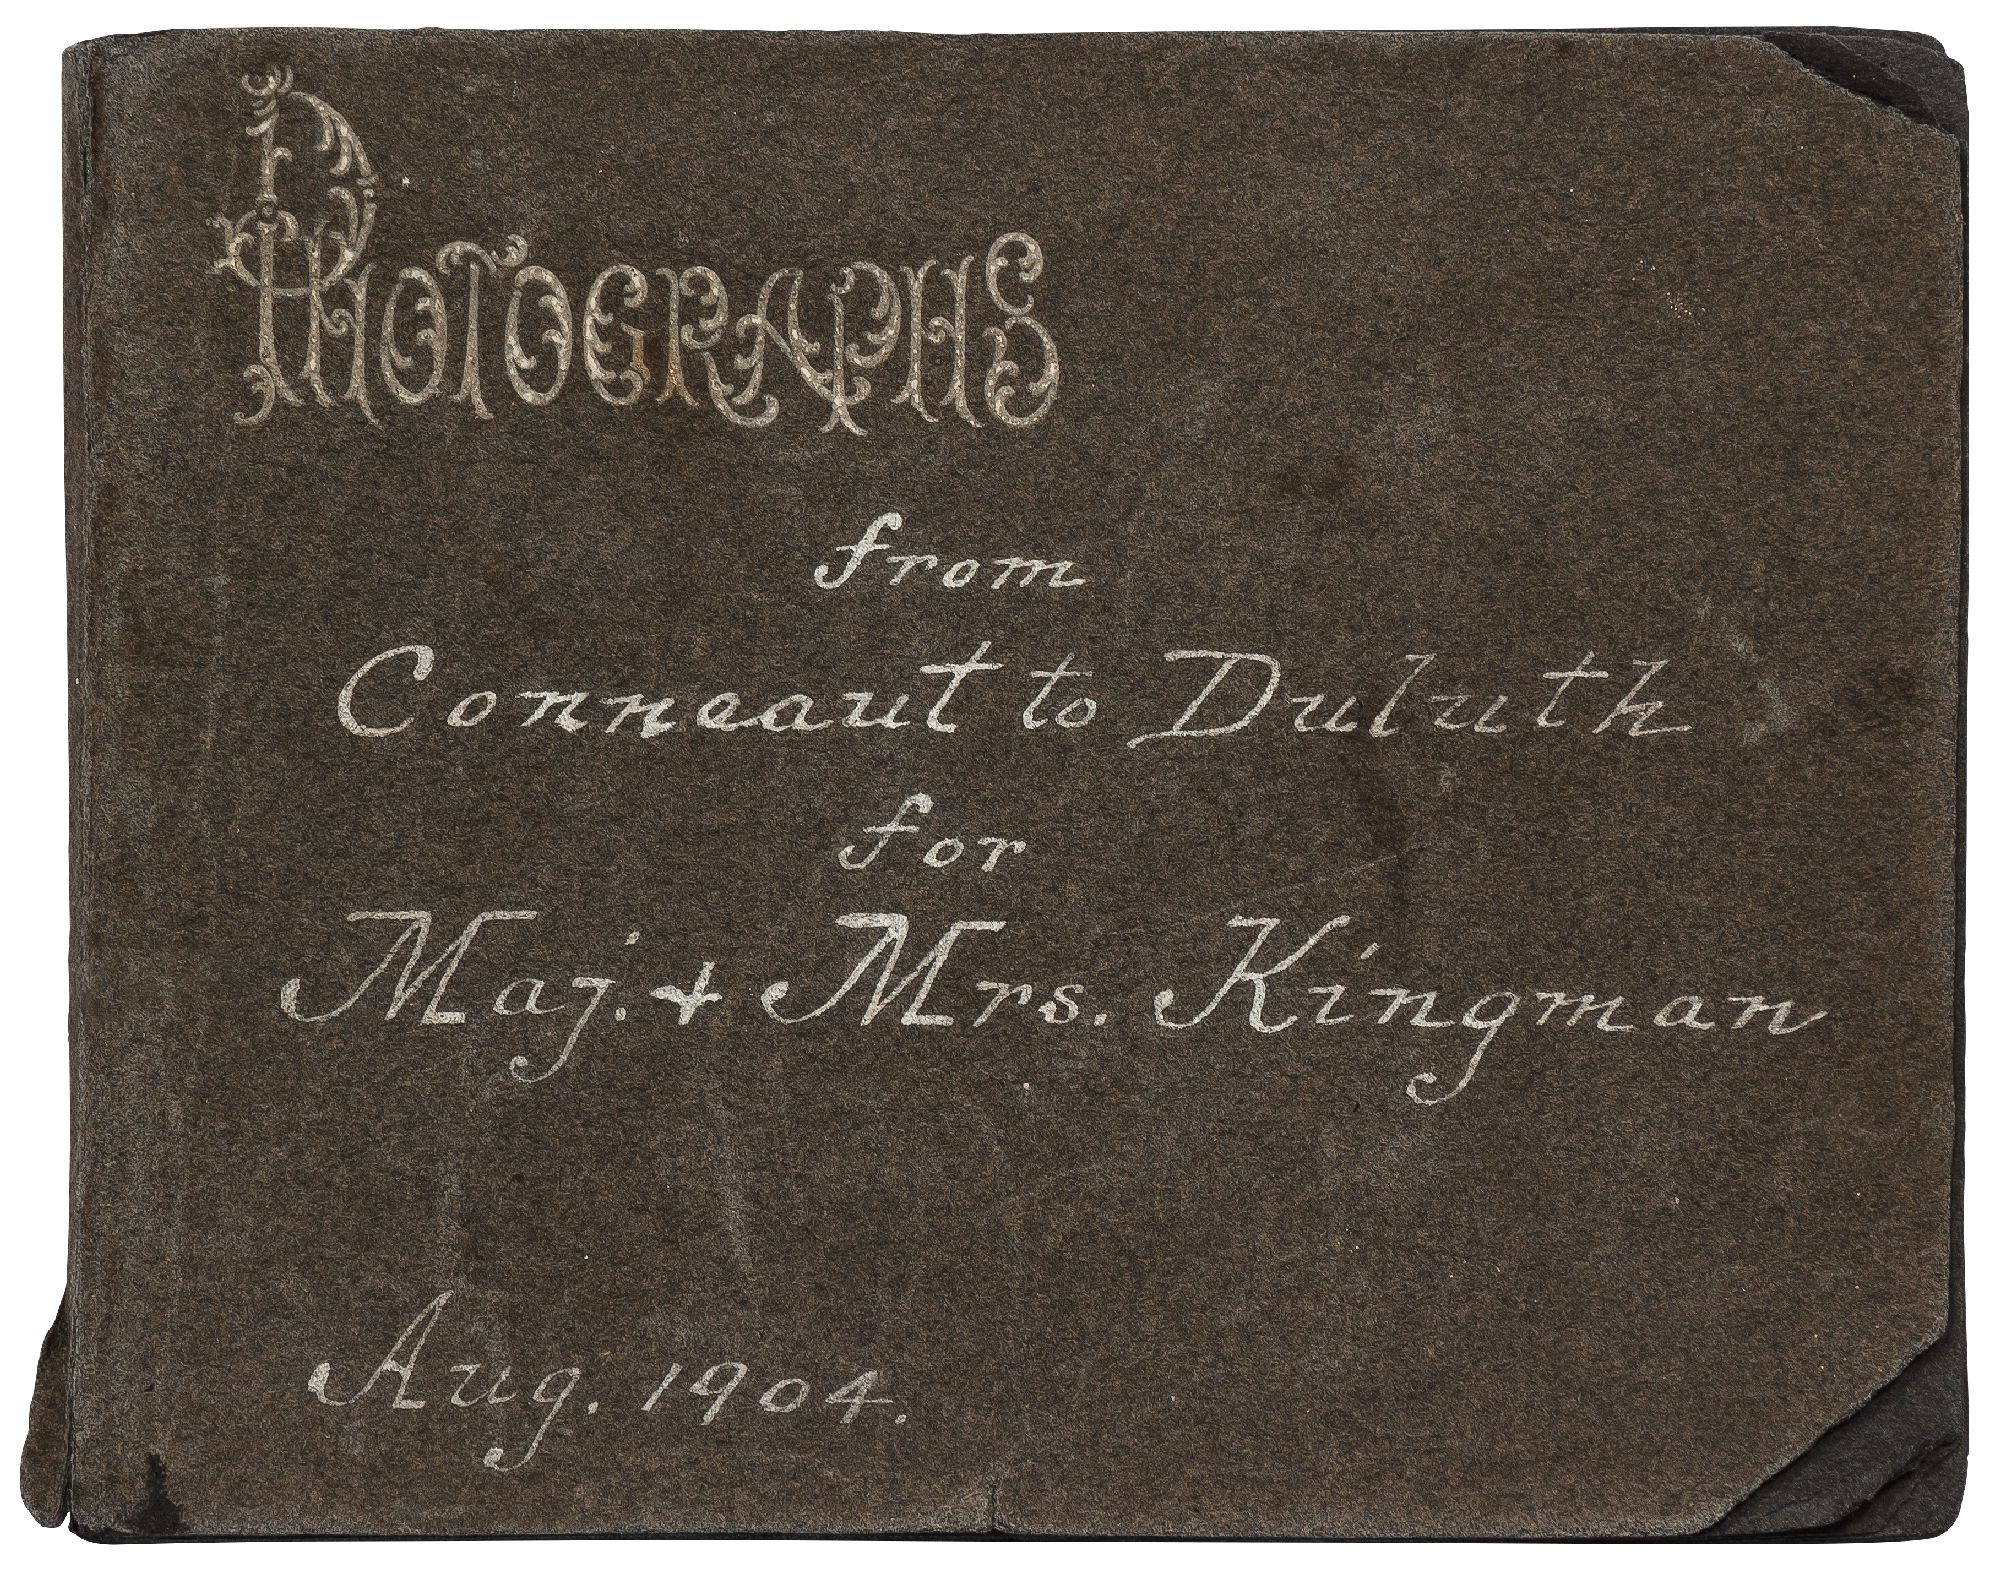 PHOTOGRAPHS
from
Conneaut to Duluth
for
Maj. & Mrs. Kingman
Aug. 1904.